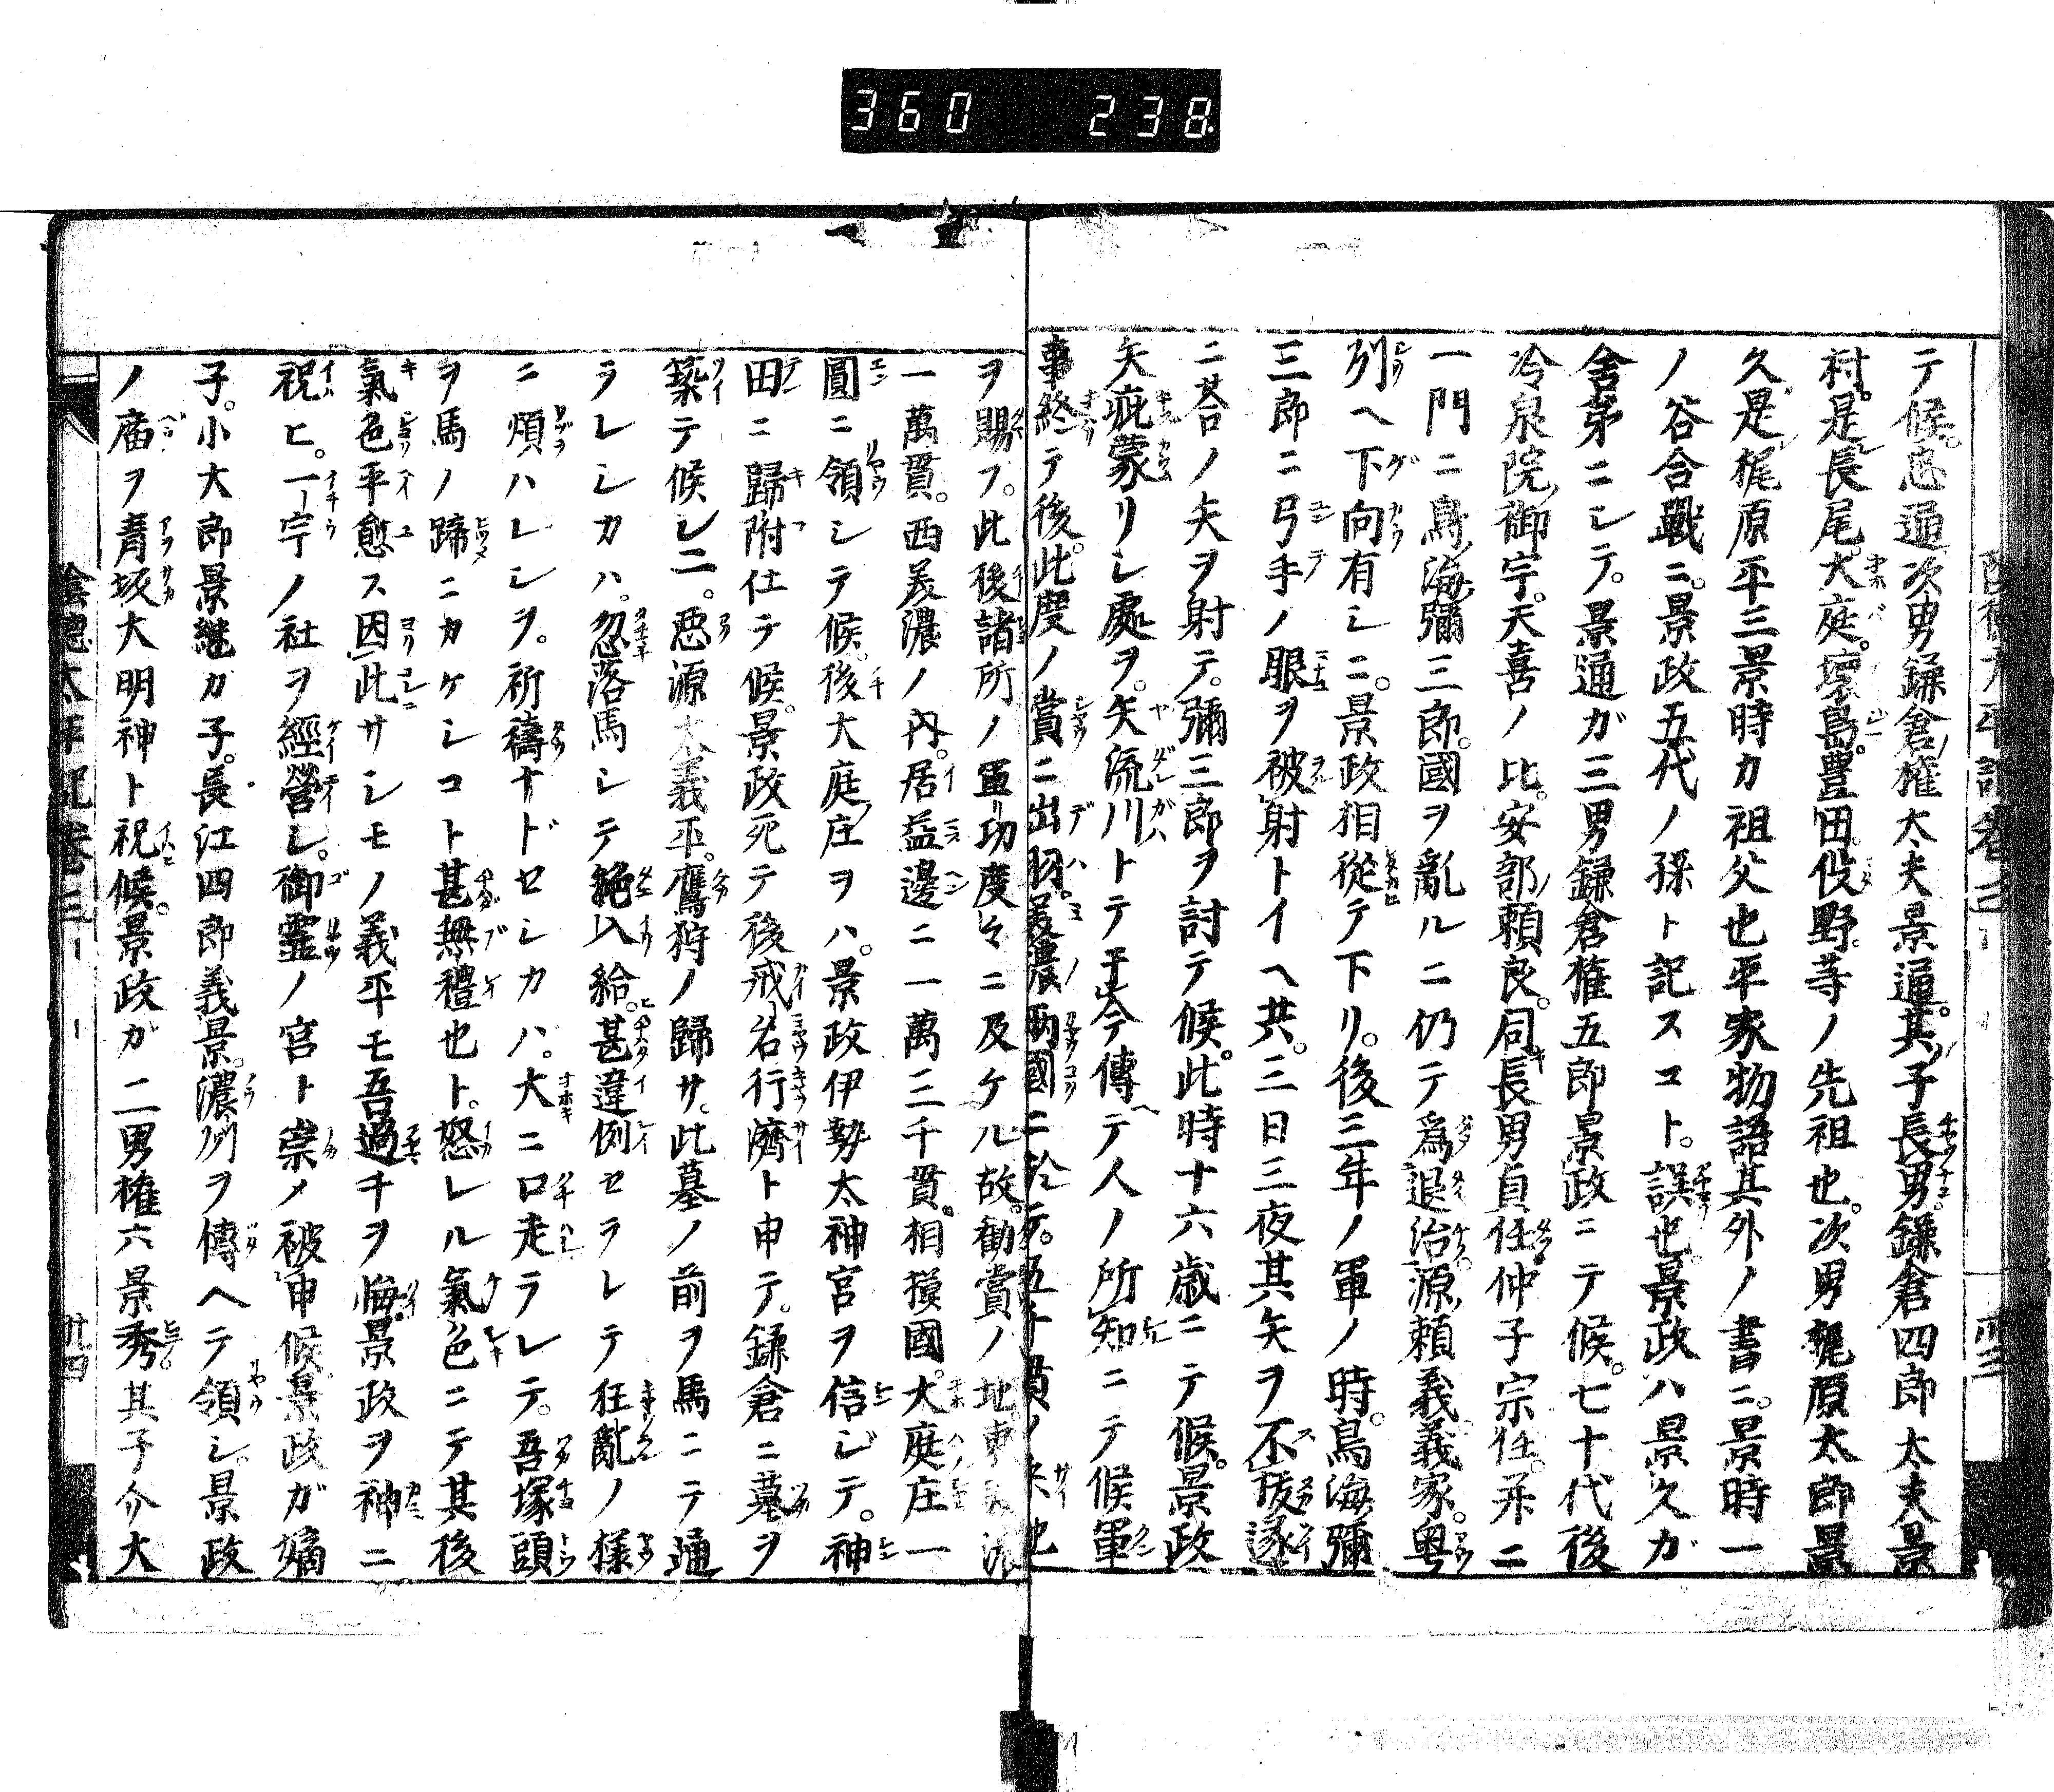 360 238
テ候。忠通次男鎌倉權太夫景通。其子長男。鎌倉四郎太夫景
村。是長尾。大庭。懷島。豊田。俣野。等ノ先祖也。次男梶原太郎景
久是梶原平三景時カ祖父也平家物語其外ノ書ニ。景時一
ノ谷合戰ニ。景政五代ノ孫ト記スコト。誤也景政ハ景久ガ
舍弟ニシテ。景通ガ三男鎌倉權五郎景政ニテ候。七十代後
冷泉院御宇。天喜ノ比。安部賴良。同長男貞任仲子宗任。釆ニ
一門ニ鳥海彌三郎。國ヲ亂ルニ仍テ爲退治源賴義義家。奥
刕ヘ下向有シニ。景政相從テ下リ。後三年ノ軍ノ時。鳥海彌
三郎ニ弓手ノ眼ヲ被射トイヘ共。三日三夜其矢ヲ不拔遂
ニ荅ノ矢ヲ射テ。彌三郎ヲ討テ候。此時十六歳ニテ候。景政
矢疵蒙リシ處ヲ。矢流川トテ于今傳ヘテ人ノ所知ニテ候軍
事終テ後。此度ノ賞ニ出羽。美濃兩國ニ於テ。五千貫ノ采地
ヲ賜フ。此後諸所ノ軍功度々ニ及ケル故。勸賞ノ地東美濃
一萬貫。西美濃ノ內。居益邊ニ一萬三千貫。相摸國。大庭庄一
圓ニ領シテ候。後大庭庄ヲハ。景政伊勢太神宮ヲ信ジテ。神
田ニ歸附仕テ候。景政死テ後戒名行濟ト申テ。鎌倉ニ墓ヲ
築テ候シニ。惡源太義平。鷹狩ノ歸サ。此墓ノ前ヲ馬ニテ通
ラレシカハ。忽落馬シテ絶入給。甚違例セラレテ狂亂ノ樣
ニ煩ハレシヲ。祈禱ナドセシカバ。大ニ口走ラレテ。吾塚頭
ヲ馬ノ蹄ニカケシコト甚無禮也ト。怒レル氣色ニテ其後
氣色平愈ス因此サシモノ義平モ吾過チヲ悔景政ヲ神ニ
祝ヒ。一宇ノ社ヲ經營シ。御靈ノ宮ト崇メ被申候景政ガ嫡
子。小大郎景継カ子。長江四郎義景。濃州ヲ傳ヘテ領シ。景政
ノ廟ヲ青坂大明神ト祝候。景政ガ二男權六景秀。其子介大
陰德太平記卷三 廿四